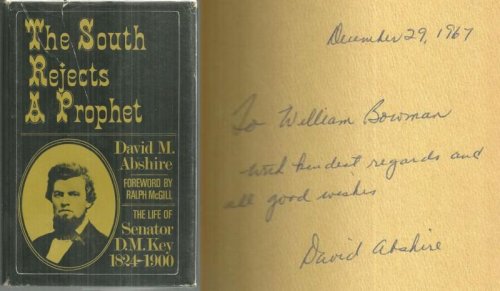 The South
Rejects
A Prophet
David M.
Abshire
FOREWORD BY
RALPH McGILL
THE LIFE OF
Senator
D.M. Key
1824-1900
December 29, 1967
To William Bowman
with kindest regards and
all good wishes
David Abshire